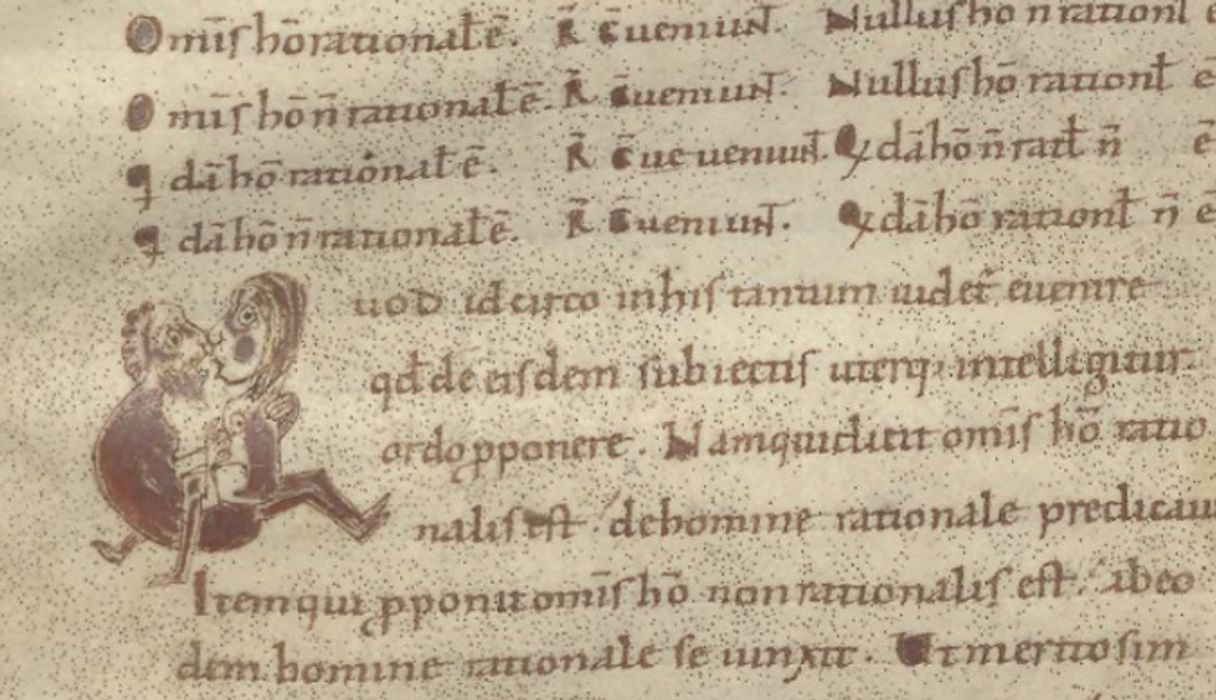 Omīſ hō rationał ē. R̄ c̄ueniunt. Nullus hō n rationł ē
Omīſ hō n̄ rationał ē. R̄ c̄ueniunt. Nullus hō rationł ē
q dā hō rationał ē. R̄ c̄ueniunt. Q dā hō n̄ n̄ ē
q dā hō n̄ rationał ē. R̄ c̄ueniunt. Q dā hō rationł n̄ ē
uod idcirco in hiſ tantum uidet̄ euenire
qđ de eiſdem ſubiectiſ uterq; intelligitur.
ordo pponere. Nam qui dicit omīſ hō ratio
naliſ eſt. de homine rationale predicau
Item qui pponit omīſ hō non rationaliſ eſt. ab eo
dem homine rationale ſe iunxit. Et merito ſim